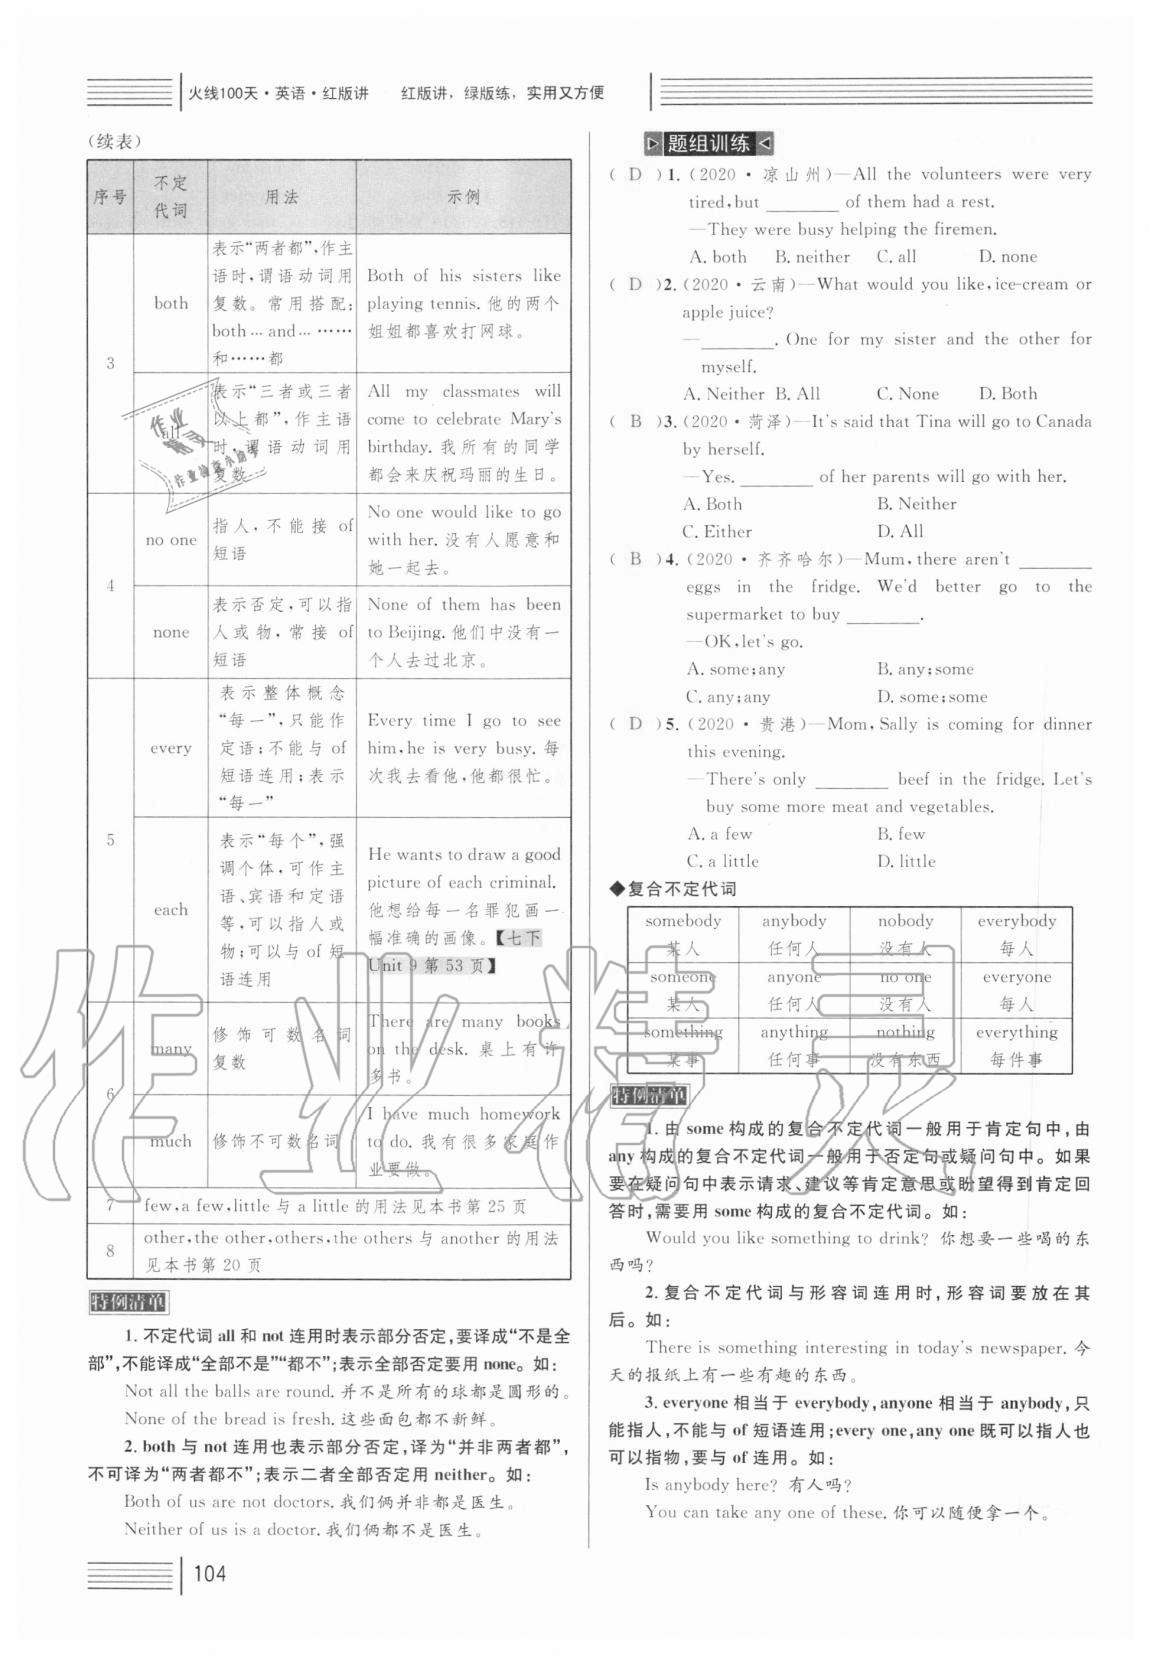 火线100天·英语·红版讲 红版讲，绿版练，实用又方便
（续表）
序号 不定代词 用法 示例
3
both
表示“两者都”，作主
语时，谓语动词用
复数。常用搭配：
both … and … ……
和……都
Both of his sisters like
playing tennis. 他的两个
姐姐都喜欢打网球。
all
表示“三者或三者
以上都”，作主语
时，谓语动词用
复数
All my classmates will
come to celebrate Mary's
birthday. 我所有的同学
都会来庆祝玛丽的生日。
4
no one
指人，不能接 of
短语
No one would like to go
with her. 没有人愿意和
她一起去。
none
表示否定，可以指
人或物，常接 of
短语
None of them has been
to Beijing. 他们中没有一
个人去过北京。
5
every
表示整体概念
“每一”，只能作
定语；不能与 of
短语连用；表示
“每一”
Every time I go to see
him, he is very busy. 每
次我去看他，他都很忙。
each
表示“每个”，强
调个体，可作主
语、宾语和定语
等，可以指人或
物；可以与 of 短
语连用
He wants to draw a good
picture of each criminal.
他想给每一名罪犯画一
幅准确的画像。【七下
Unit 9 第 53 页】
6
many
修饰可数名词
复数
There are many books
on the desk. 桌上有许
多书。
much
修饰不可数名词
I have much homework
to do. 我有很多家庭作
业要做。
7 few, a few, little 与 a little 的用法见本书第 25 页
8
other, the other, others, the others 与 another 的用法
见本书第 20 页
特例清单
1. 不定代词 all 和 not 连用时表示部分否定，要译成“不是全
部”，不能译成“全部不是”“都不”；表示全部否定要用 none。如：
Not all the balls are round. 并不是所有的球都是圆形的。
None of the bread is fresh. 这些面包都不新鲜。
2. both 与 not 连用也表示部分否定，译为“并非两者都”，
不可译为“两者都不”；表示二者全部否定用 neither。如：
Both of us are not doctors. 我们俩并非都是医生。
Neither of us is a doctor. 我们俩都不是医生。
104
题组训练
( D )1. (2020·凉山州)—All the volunteers were very
tired, but ________ of them had a rest.
—They were busy helping the firemen.
A. both B. neither C. all D. none
( D )2. (2020·云南)—What would you like, ice-cream or
apple juice?
—________. One for my sister and the other for
myself.
A. Neither B. All C. None D. Both
( B )3. (2020·菏泽)—It's said that Tina will go to Canada
by herself.
—Yes. ________ of her parents will go with her.
A. Both B. Neither
C. Either D. All
( B )4. (2020·齐齐哈尔)—Mum, there aren't ________
eggs in the fridge. We'd better go to the
supermarket to buy ________.
—OK, let's go.
A. some; any B. any; some
C. any; any D. some; some
( D )5. (2020·贵港)—Mom, Sally is coming for dinner
this evening.
—There's only ________ beef in the fridge. Let's
buy some more meat and vegetables.
A. a few B. few
C. a little D. little
◆复合不定代词
somebody anybody nobody everybody
某人 任何人 没有人 每人
someone anyone no one everyone
某人 任何人 没有人 每人
something anything nothing everything
某事 任何事 没有东西 每件事
特例清单
1. 由 some 构成的复合不定代词一般用于肯定句中，由
any 构成的复合不定代词一般用于否定句或疑问句中。如果
要在疑问句中表示请求、建议等肯定意思或盼望得到肯定回
答时，需要用 some 构成的复合不定代词。如：
Would you like something to drink? 你想要一些喝的东
西吗？
2. 复合不定代词与形容词连用时，形容词要放在其
后。如：
There is something interesting in today's newspaper. 今
天的报纸上有一些有趣的东西。
3. everyone 相当于 everybody, anyone 相当于 anybody, 只
能指人，不能与 of 短语连用；every one, any one 既可以指人也
可以指物，要与 of 连用。如：
Is anybody here? 有人吗？
You can take any one of these. 你可以随便拿一个。
作业精灵